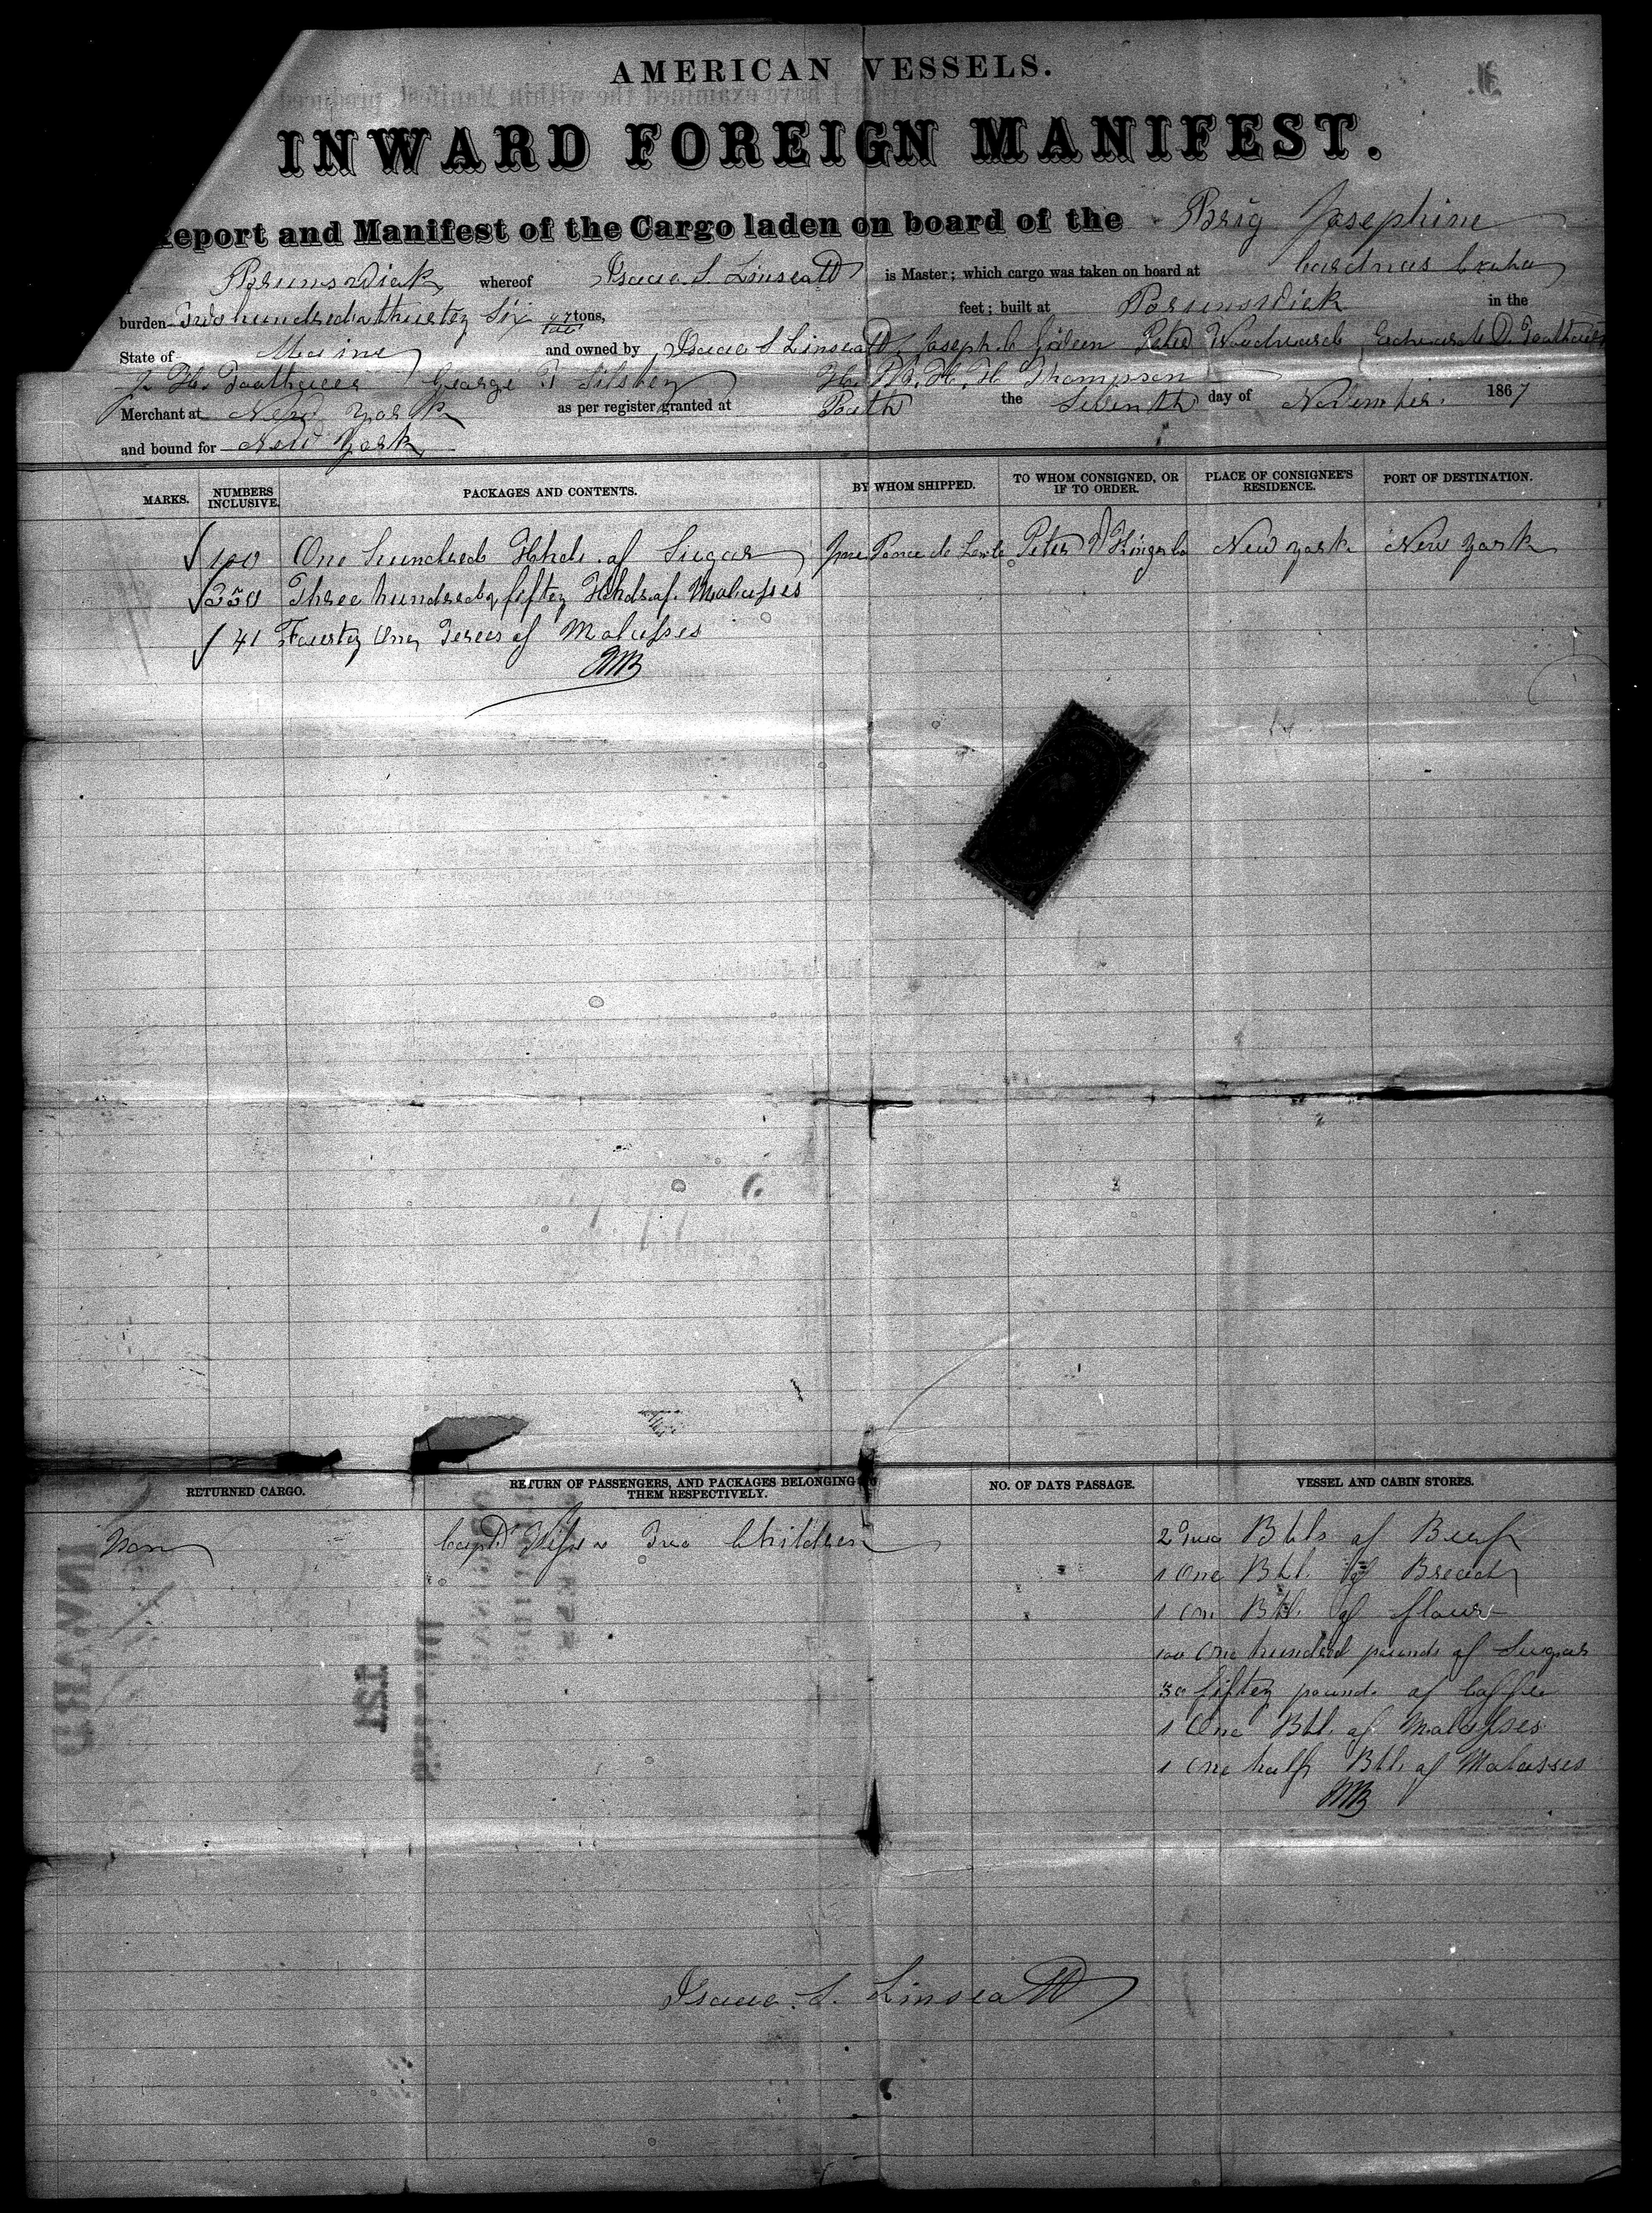 AMERICAN VESSELS.
INWARD FOREIGN MANIFEST.
Report and Manifest of the Cargo laden on board of the Brig Josephine
Brunswick whereof Isaac S. Linscott is Master; which cargo was taken on board at Cardnas Cuba
burden Two hundred & thirty Six 47/100 tons, feet; built at Brunswick in the
State of Maine and owned by Isaac S Linscott, Joseph C Green Peter Woodward Edward D. Toothacer
J. H. Toothacer George T H. Thompson
Merchant at New York as per register granted at Bath the Seventh day of November. 1867
and bound for New York
MARKS. NUMBERS INCLUSIVE. PACKAGES AND CONTENTS. BY WHOM SHIPPED. TO WHOM CONSIGNED, OR IF TO ORDER. PLACE OF CONSIGNEE'S RESIDENCE. PORT OF DESTINATION.
100 One hundred Hhds. of Sugar Ponce de Peter New York New York
350 Three hundred & fifty Hhds. of Molasses
41 Fourty One Terces of Molasses
RETURNED CARGO. RETURN OF PASSENGERS, AND PACKAGES BELONGING TO THEM RESPECTIVELY. NO. OF DAYS PASSAGE. VESSEL AND CABIN STORES.
Non Capt Wife & Two Children 2 Two Bbls of Beef
1 One Bbl. of Bread
1 On Bbl. of flour
100 One hundred pounds of Sugar
50 fiftey pounds of Coffee
1 One Bbl. of Molasses
1 One half Bbl. of Molasses
Isaac. S. Linscott